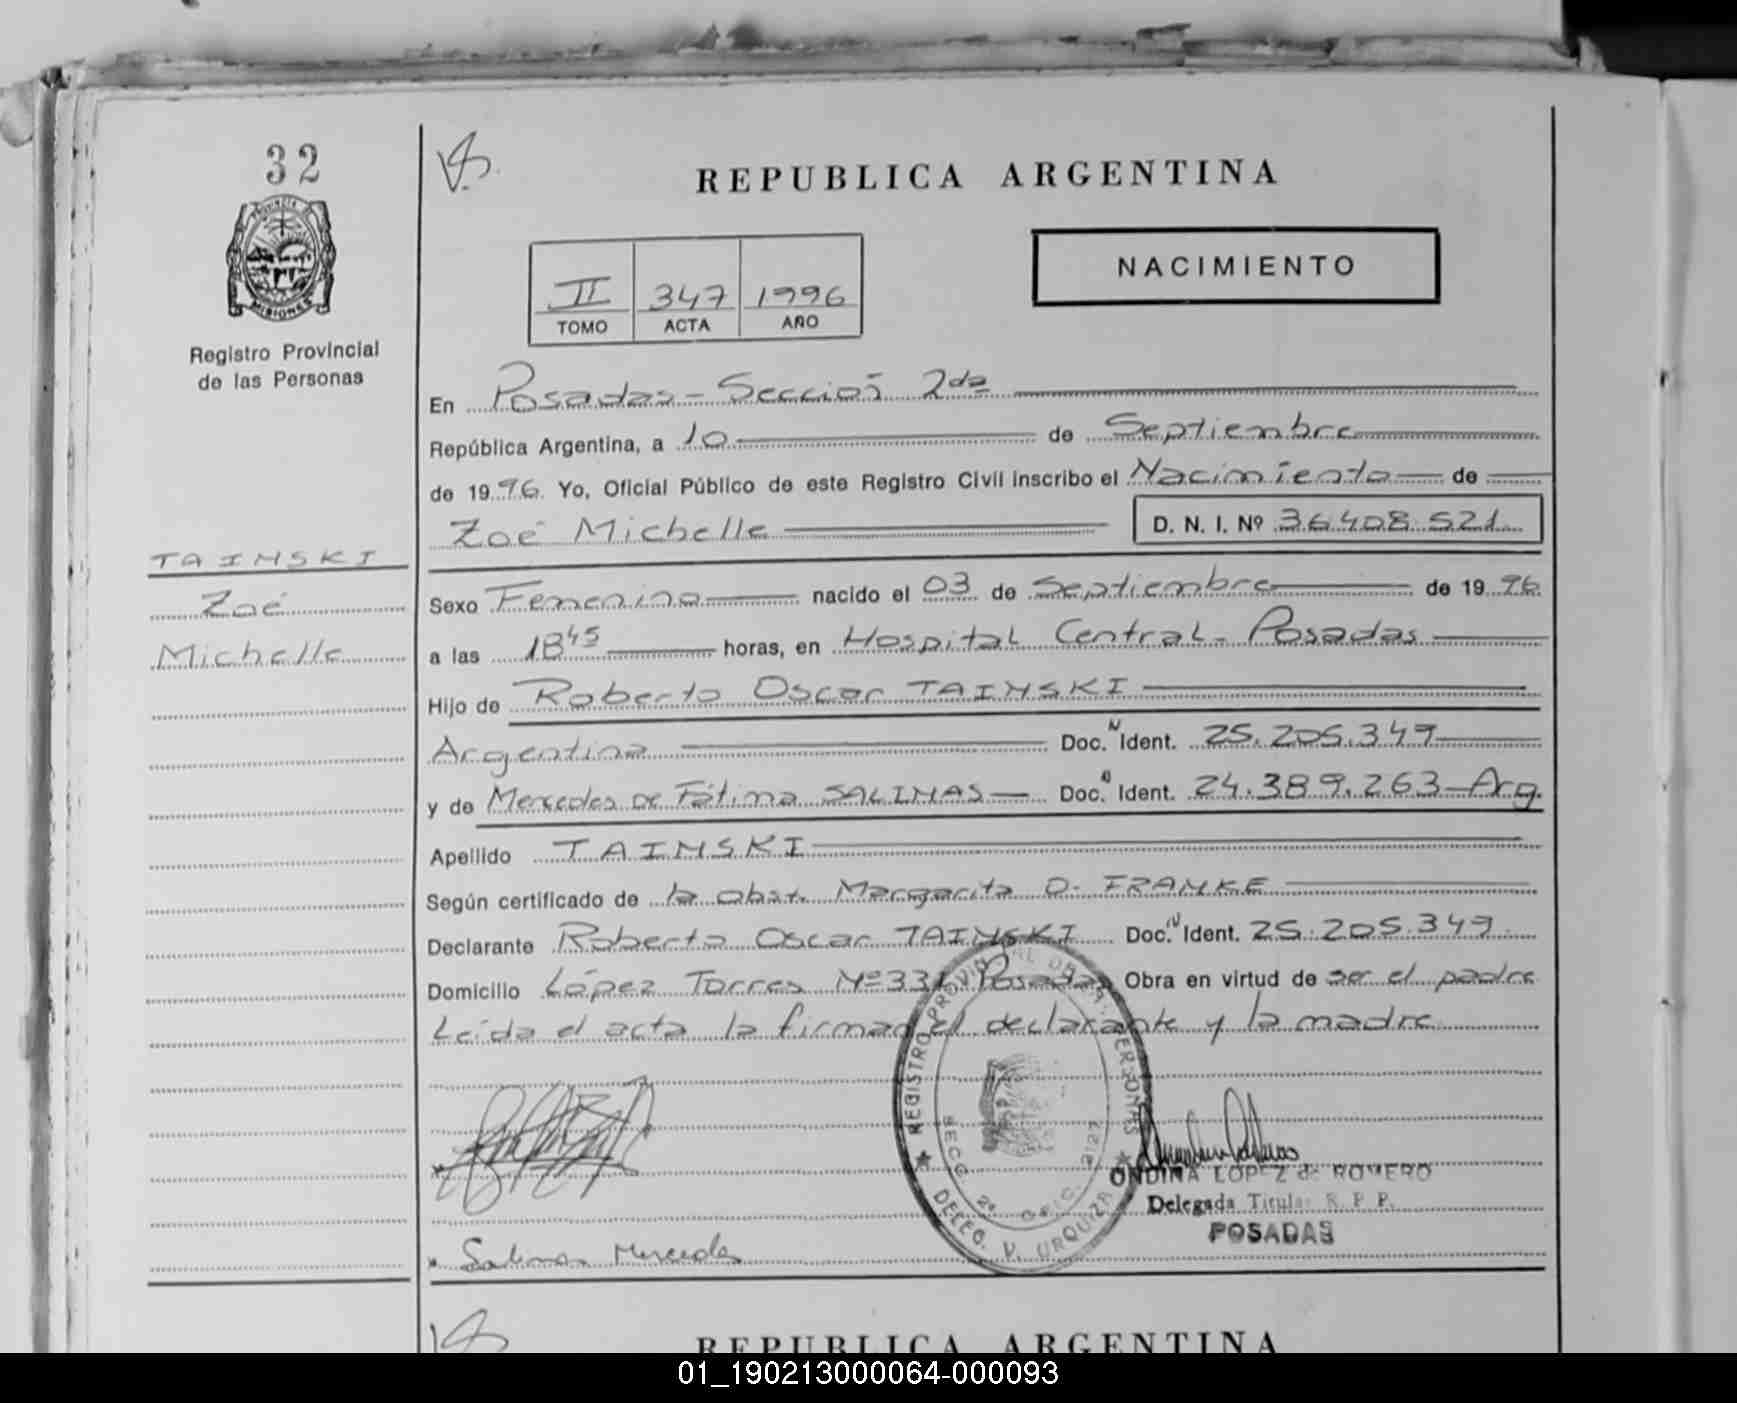 32
PROVINCIA DE
MISIONES
Registro Provincial
de las Personas
TAINSKI
Zoé
Michelle
REPUBLICA ARGENTINA
NACIMIENTO
II 347 1996
TOMO ACTA AÑO
En Posadas - Sección 2da
República Argentina, a 10 de Septiembre
de 1996. Yo, Oficial Público de este Registro Civil inscribo el Nacimiento de
Zoé Michelle D. N. I. Nº 36408.521
Sexo Femenino nacido el 03 de Septiembre de 1996
a las 18 45 horas, en Hospital Central - Posadas
Hijo de Roberto Oscar TAINSKI
Argentina Doc. N Ident. 25.205.349
y de Mercedes DE Fátima SALINAS Doc. N Ident. 24.389.263 Arg.
Apellido TAINSKI
Según certificado de la obst. Margarita O. FRANKE
Declarante Roberto Oscar TAINSKI Doc. N Ident. 25.205.349
Domicilio López Torres Nº 331 Posadas Obra en virtud de ser el padre
Leída el acta la firman el declarante y la madre
REGISTRO PROVINCIAL DE LAS PERSONAS
SECC. 2ª OFIC. 2127
DELEG. V. URQUIZA
ONDINA LOPEZ de ROMERO
Delegada Titular R. P. P.
POSADAS
Salinas Mercedes
REPUBLICA ARGENTINA
01_190213000064-000093